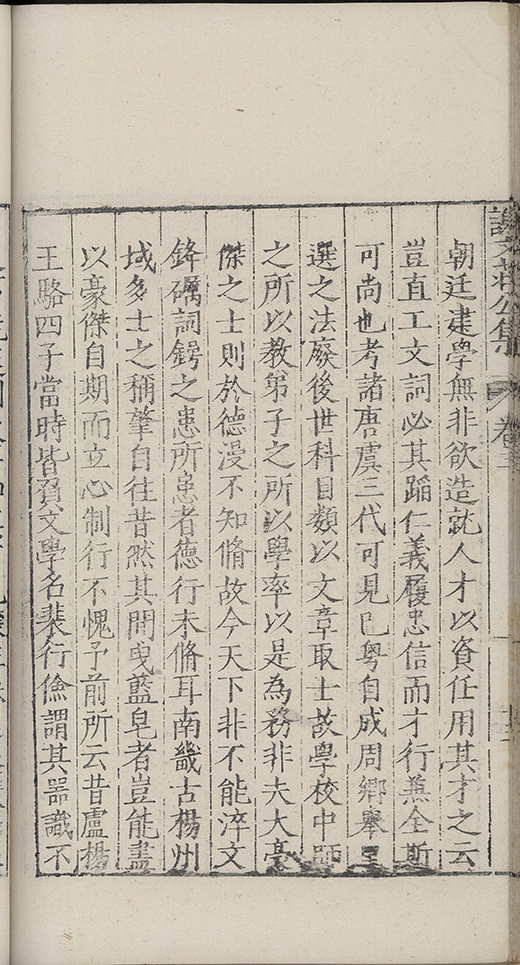 朝廷建學無非欲造就人才以資任用其才之云
豈直工文詞必其蹈仁義履忠信而才行兼全斯
可尚也考諸唐虞三代可見已粤自成周鄉舉里
選之法廢後世科目類以文章取士故學校中師
之所以教弟子之所以學率以是為務非夫大豪
傑之士則於德漫不知脩故今天下非不能淬文
鋒礪詞鍔之患所患者德行未脩耳南畿古楊州
域多士之稱肇自往昔然其間曳藍皂者豈能盡
以豪傑自期而立心制行不愧予前所云昔盧楊
王駱四子當時皆負文學名裴行儉謂其器識不
文莊公集
卷